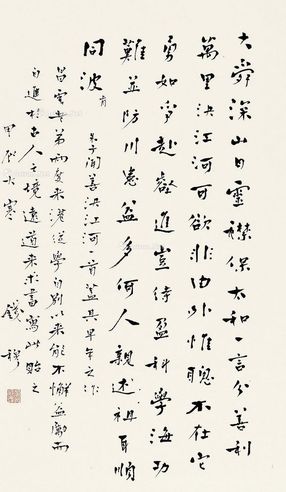 大舜深山日靈襟保太和一言分善利
萬里決江河可欲非由外惟聰不在它
勇如爭赴壑進豈待盈科學海功
難並防川患益多何人親述祖耳順
同波 肯
朱子聞善決江河一首蓋其早年之作
昌弟兩度來港從學自別以來能不懈益勵而
自進於古人之境遠道來求書寫此貽之
甲辰大寒 錢穆